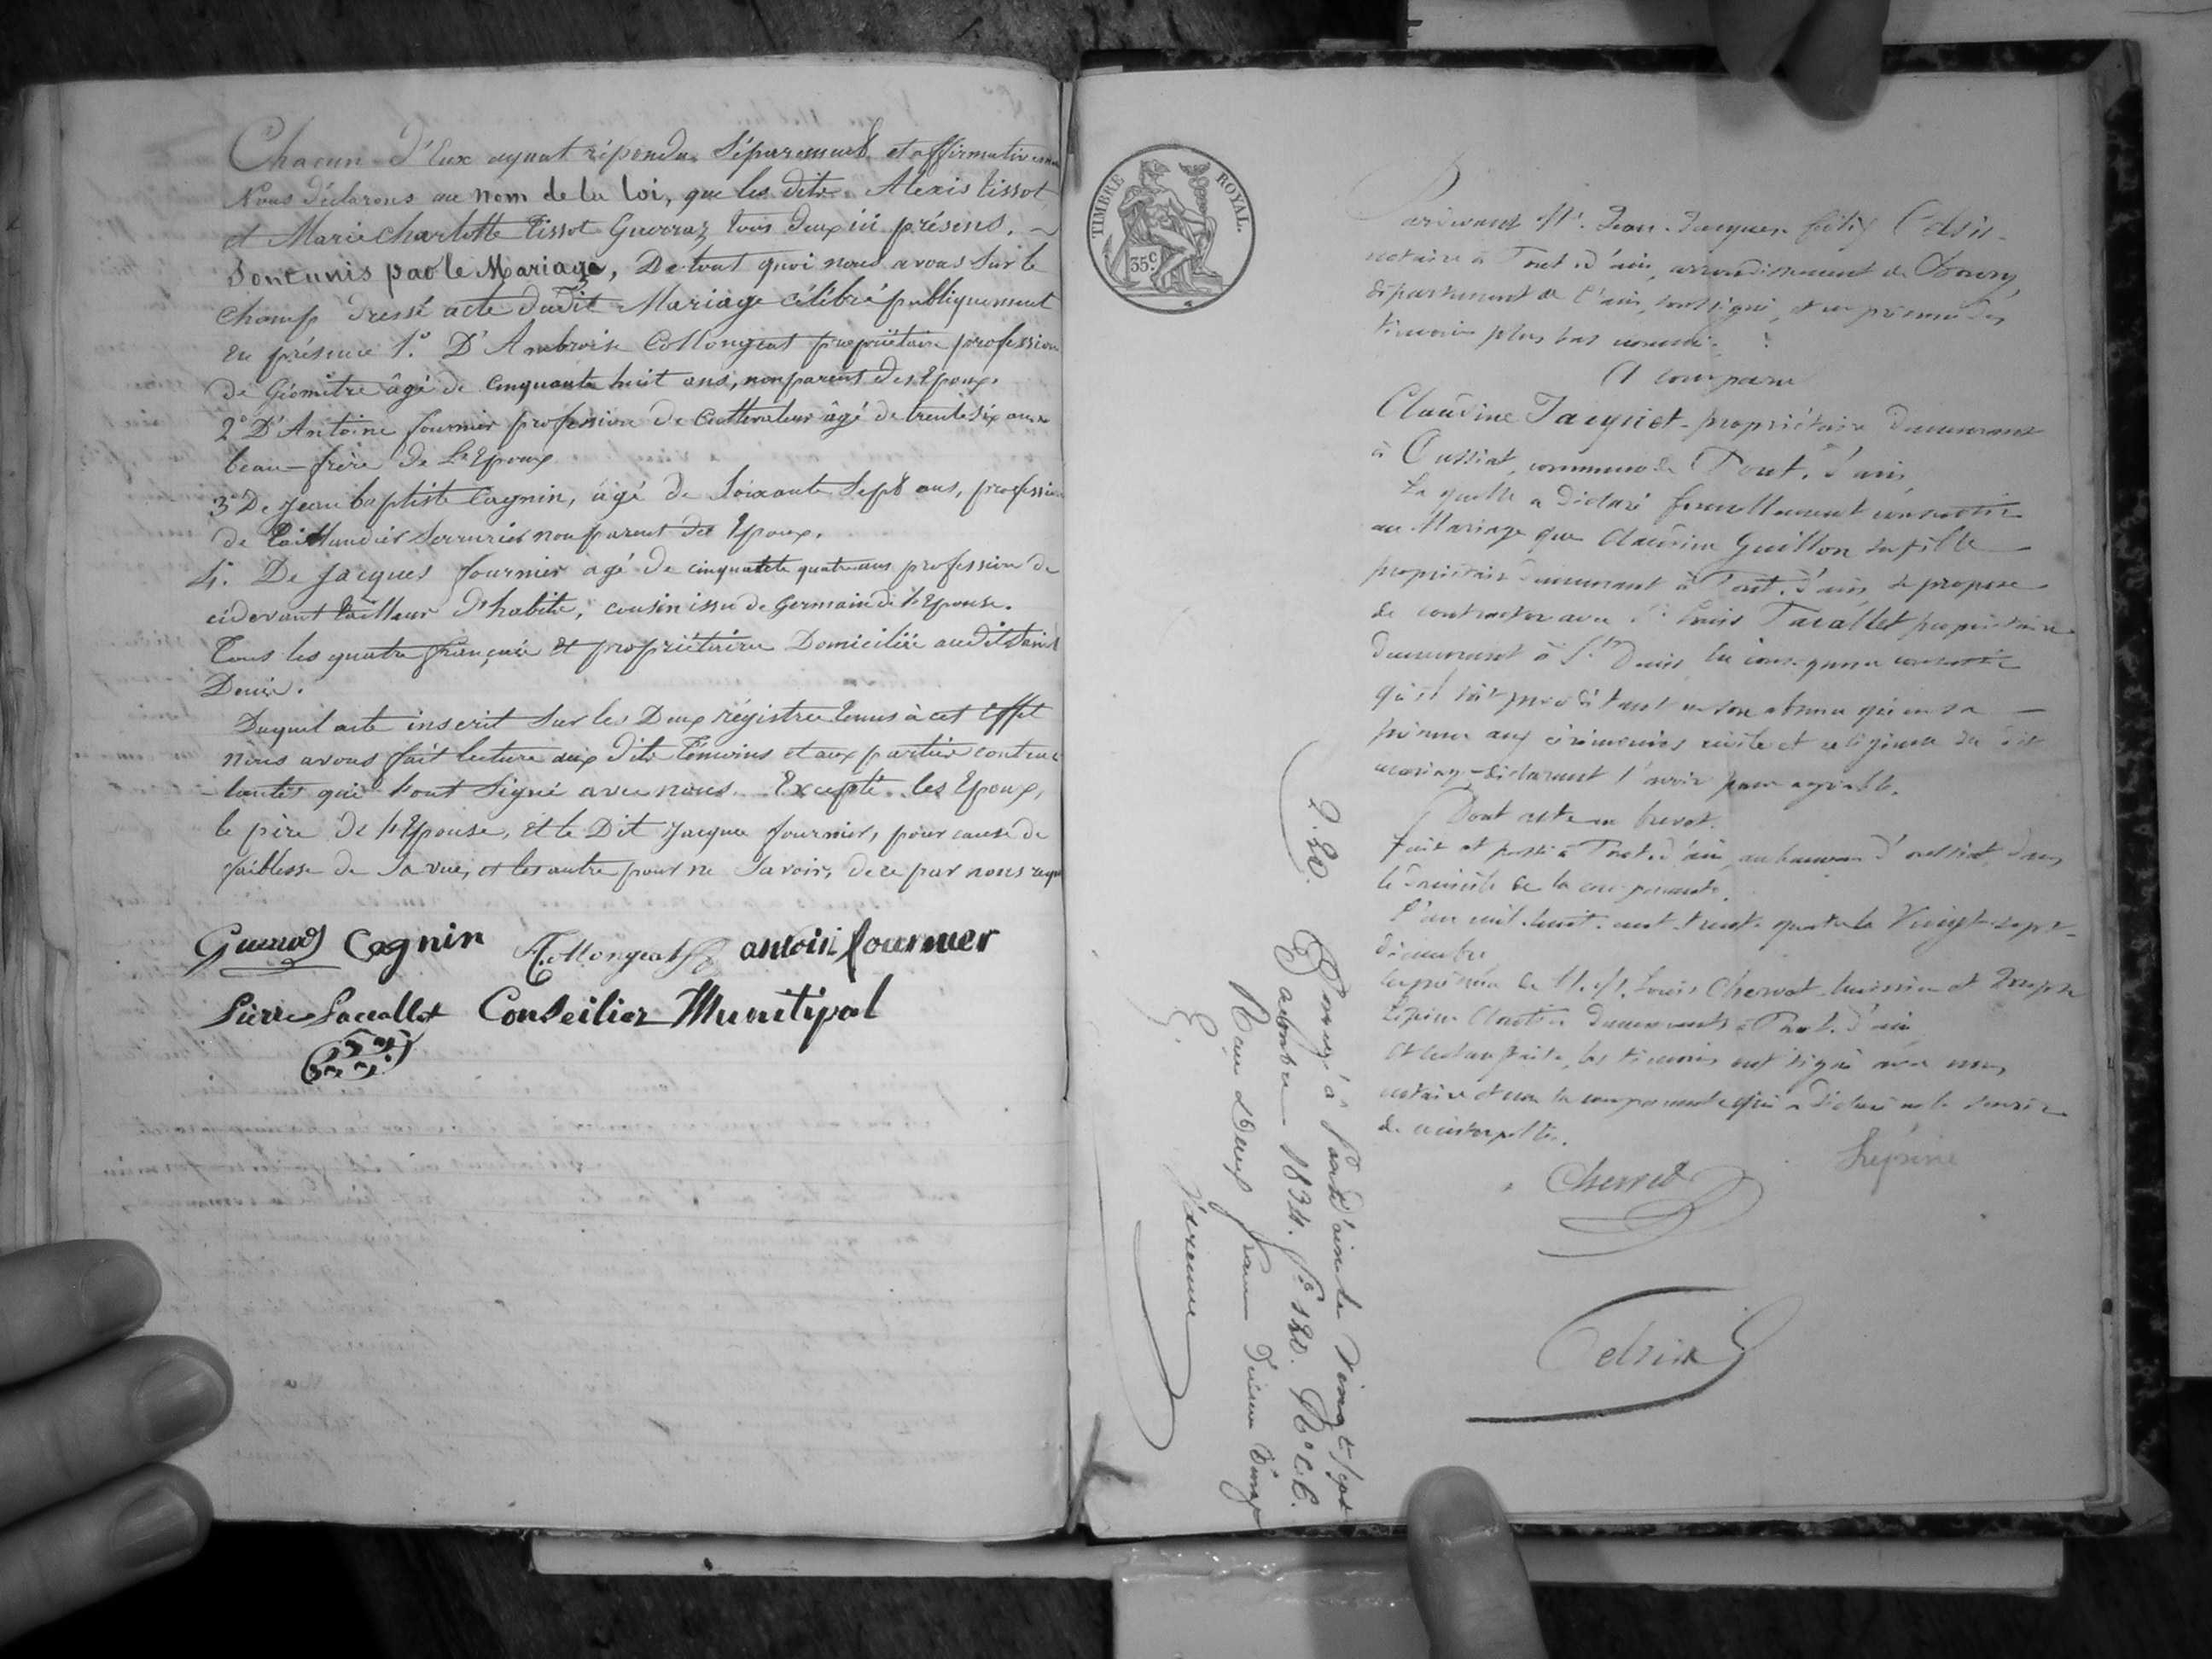 Chacun d'Eux ayant répondu Séparement et affirmativement
Nous déclarons au nom de la Loi, que les dits Alexis tissot
et Marie Charlotte Tissot Guerraz tous deux ici présens. ~
Sont unis par le Mariage, De tout quoi nous avons Sur le
Champ dressé acte dudit Mariage célébré publiquement
en présence 1.° D'Ambroise Collongeat propriétaire profession
de Géomètre âgé de Cinquante huit ans, non parent des Epoux.
2° D'Antoine fournier profession de Cultivateur âgé de trente six ans
beau-frère de L'Epoux
3° De Jean baptiste Cagnin, âgé de Soixante Sept ans, profession
de Taillandier Serrurier non parent des Epoux.
4.° De Jacques fournier agé de cinquante quatre ans profession de
cidevant tailleur d'habits, cousin issu de Germain de l'Epouse.
Tous les quatre français et propriétaires Domiciliés audit Saint
Denis.
Duquel acte inscrit Sur les Deux régistres tenus à cet effet
nous avons fait lecture aux dits Témoins et aux parties contrac
-tantes qui l'ont Signé avec nous. Excepté les Epoux,
le père de l'Epouse, et le Dit Jacques fournier, pour cause de
faiblesse de Sa vue, et les autre pour ne Savoir, de ce par nous requis
Cagnin antoine fournier
Pierre Conseilier Munitipal
TIMBRE ROYAL.
35.c
Pardevant M.e Jean-Jacques félix
notaire à Pont-d'ain, arrondissement de Bourg,
département de l'ain, soussigné, et en présence des
témoins plus bas nommés
A comparu
Claudine Jacquet propriétaire demeurant
à Oussiat, commune de Pont-d'ain,
Laquelle a déclaré formellement consentir
au Mariage que Claudine Guillon sa fille
propriétaire demeurant à Pont-d'ain, se propose
de contracter avec S.r Louis propriétaire
demeurant à S.t Denis En conséquence consentir
qu'il soit procédé tant en son absence qu'en sa
présence aux cérémonies civile et religieuse du dit
mariage déclarant l'avoir pour agréable.
Dont acte en brevet.
fait et passé à Pont-d'ain, au hameau d'oussiat, dans
le domicile de la comparante,
l'an mil huit cent trente quatre le Vingt-sept
décembre
En présence de M.M. Louis Chervet huissier et
Lépine demeurants à Pont-d'ain
Et lecture faite, les témoins ont signé avec nous
notaire et non la comparante qui a déclaré ne le savoir
de ce interpellée.
Chervet Lépine
2.20.
Enreg.é à Pont-d'ain le Vingt sept
décembre 1834. f.° 120. R.° C. 6.
Reçu deux francs décime vingt